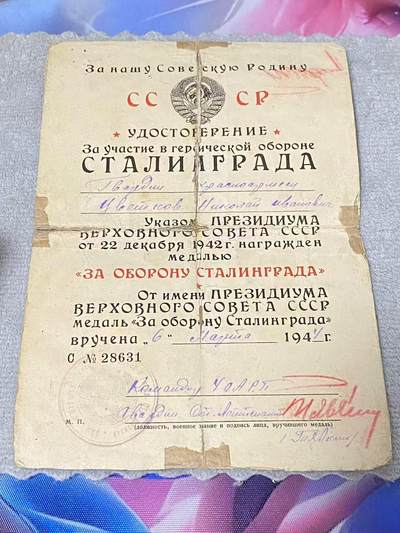 За нашу Советскую Родину
СССР
УДОСТОВЕРЕНИЕ
За участие в героической обороне
СТАЛИНГРАДА
Гвардии красноармеец
Цветков Николай Иванович
Указом ПРЕЗИДИУМА
ВЕРХОВНОГО СОВЕТА СССР
от 22 декабря 1942 г. награжден
медалью
«ЗА ОБОРОНУ СТАЛИНГРАДА»
От имени ПРЕЗИДИУМА
ВЕРХОВНОГО СОВЕТА СССР
медаль «За оборону Сталинграда»
вручена „6" Марта 1944 г.
С № 28631
Командир
Гвардии Ст. Лейтенант
М. П.
(должность, военное звание и подпись лица, вручившего медаль)